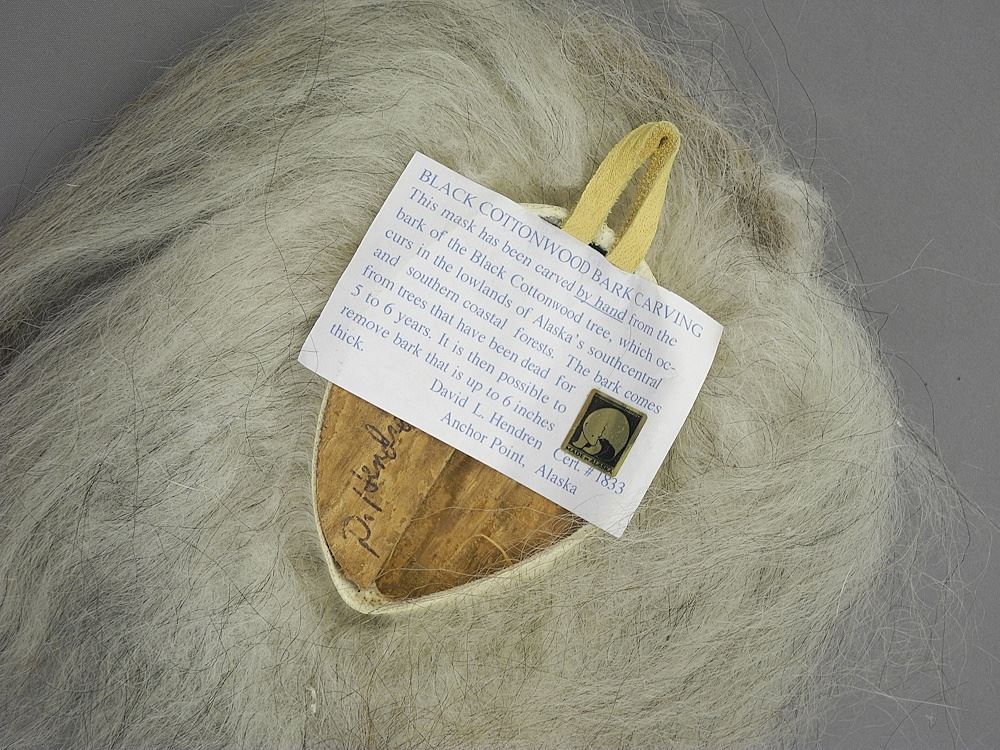 BLACK COTTONWOOD BARK CARVING
This mask has been carved by hand from the
bark of the Black Cottonwood tree, which oc-
curs in the lowlands of Alaska's southcentral
and southern coastal forests. The bark comes
from trees that have been dead for
5 to 6 years. It is then possible to
remove bark that is up to 6 inches
thick.
David L. Hendren Cert. # 1833
Anchor Point, Alaska
MADE IN ALASKA
D. Hendre